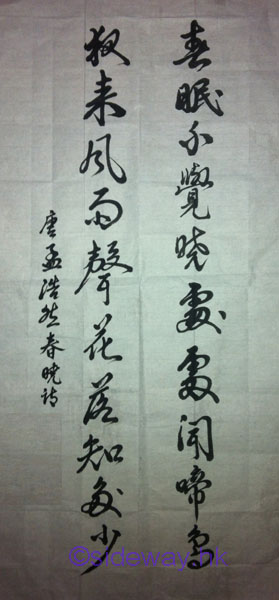 春眠不覺曉處處聞啼鳥
夜来風雨聲花落知多少
唐孟浩然春曉詩
©sideway.hk